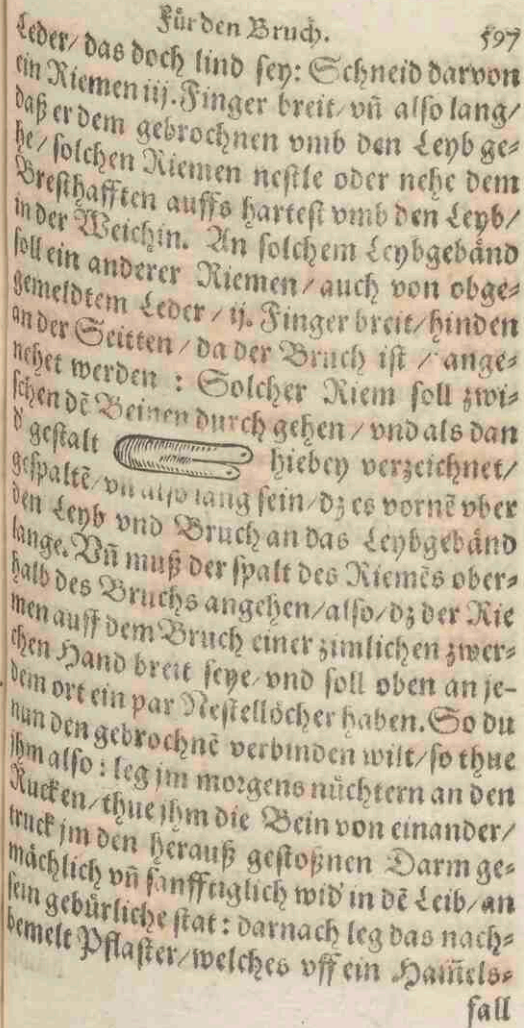 Für den Bruch. 597
Leder/ das doch lind sey: Schneid darvon
ein Riemen iij. Finger breit/ vñ also lang/
daß er dem gebrochnen vmb den Leyb ge⸗
he/ solchen Riemen nestle oder nehe dem
Bresthafften auffs hartest vmb den Leyb/
in der Weichin. An solchem Leybgebänd
soll ein anderer Riemen/ auch von obge⸗
gemeldtem Leder/ ij. Finger breit/ hinden
an der Seitten/ da der Bruch ist/ ange⸗
nehet werden: Solcher Riem soll zwi⸗
schen dē Beinen durch gehen/ vnd als dan
d' gestalt hiebey verzeichnet/
gespaltē/ vñ also lang sein/ dz es vornē vber
den Leyb vnd Bruch an das Leybgebänd
lange. Vñ muß der spalt des Riemēs ober⸗
halb des Bruchs angehen/ also/ dz der Rie
men auff dem Bruch einer zimlichen zwer⸗
chen Hand breit seye/ vnd soll oben an je⸗
dem ort ein par Nestellöcher haben. So du
nun den gebrochnē verbinden wilt/ so thue
jhm also: leg jm morgens nüchtern an den
Rucken/ thue jhm die Bein von einander/
truck jm den herauß gestoßnen Darm ge⸗
mächlich vñ sanfftiglich wid' in dē Leib/ an
sein gebürliche stat: darnach leg das nach⸗
bemelt Pflaster/ welches vff ein Ham̃els⸗
fall